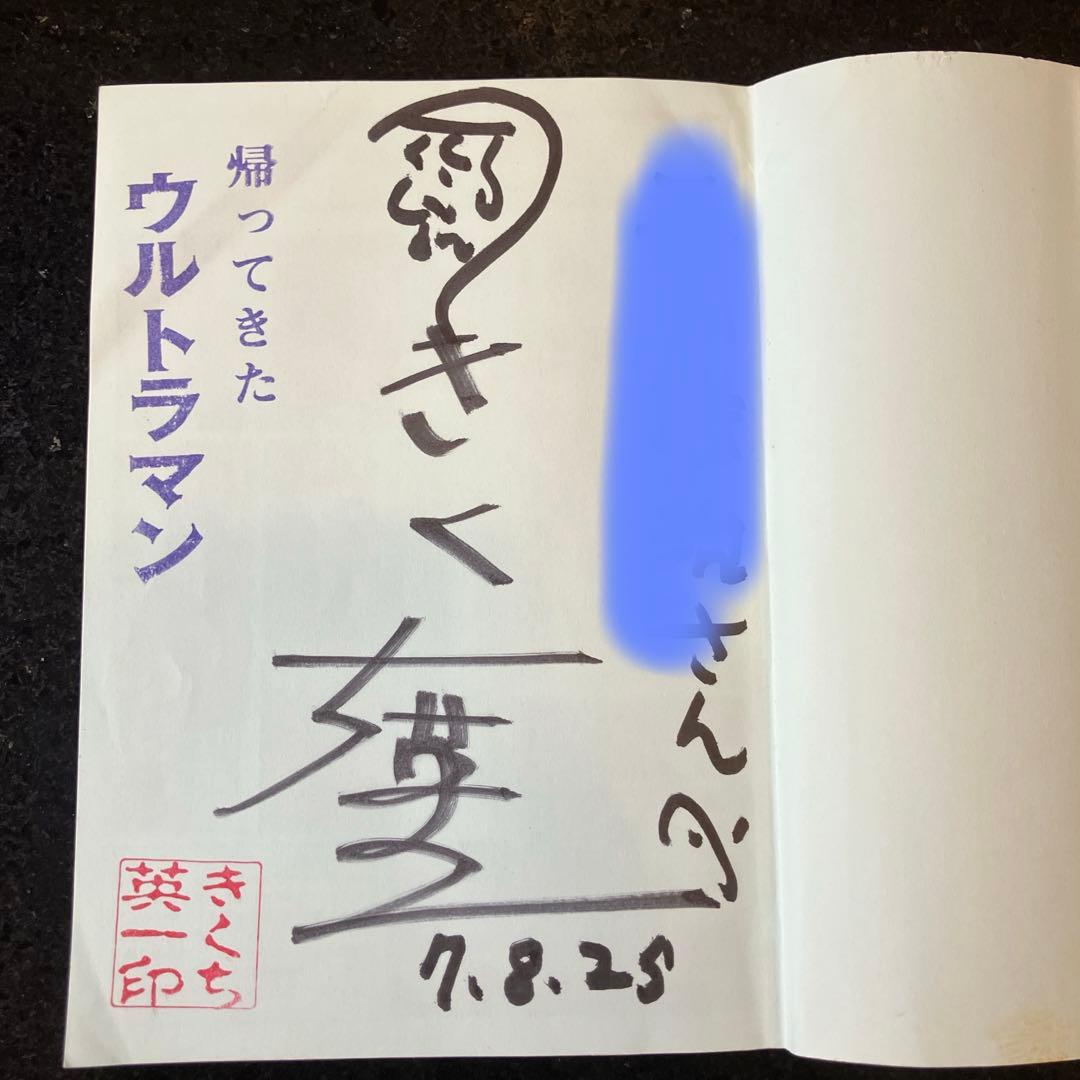 さんへ
きくち英一
7.8.25
帰ってきた
ウルトラマン
きくち
英一印